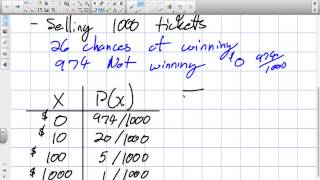 - Selling 1000 tickets
26 chances of winning
974 Not winning $0 974/1000
X P(x)
$0 974/1000
$10 20/1000
$100 5/1000
$1000 1/1000